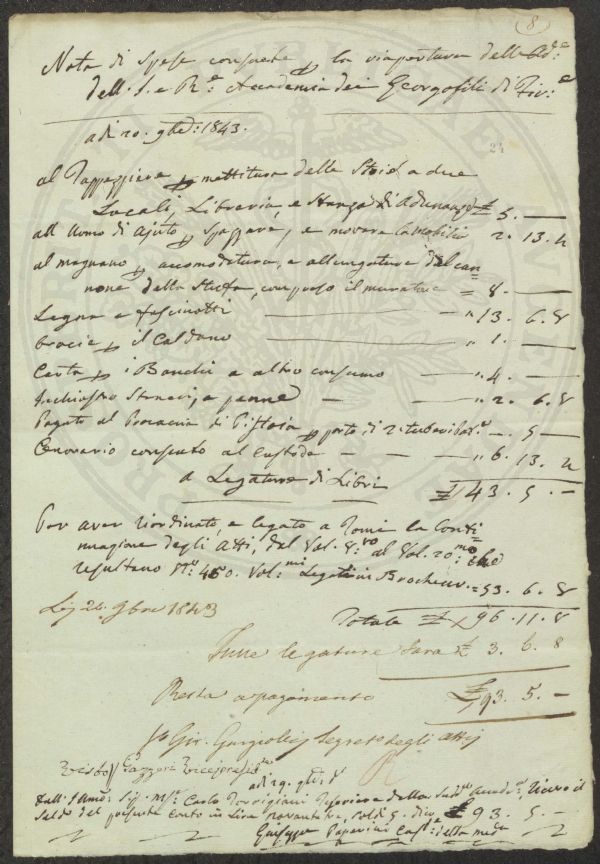 8
Nota di Spese consuete p la viapertura delle Ad:e
dell' I. e R.e Accademia dei Georgofili di Fir:e
adi 20. 9bre: 1843.
24
al Tappezziere p mettitura delle Stoie a due
Locali, Libreria, e Stanza di Adunanze £ 5. —
all Uomo di Ajuto p spazzare, e movere la Mobilia 2. 13. 4
al magnano p accomodatura, e allungatura del can=
none della Stufa, compreso il muratore = 8. —
Legna e fascinotti — " 13. 6. 8
Bracie p il Caldano — " 1. —
Carta p i Banchi e altro consumo — " 4. —
Inchiostro Stracci, e penne — " 2. 6. 8
Pagato al Procaccia di Pistoia p porto di 2 —. 5 —
Onorario consueto al Custode — " 6. 13. 4
£ 43. 5. —
a Legature di Libri
Per aver riordinato, e legato a Tomi la Conti=
nuazione degli Atti, dal Vol. 8:vo al Vol. 20:mo che
resultano N:o 460. Vol:mi Legati in Brocheur. = 53. 6. 8
Li 24. 9bre 1843
Totale £ 96. 11. 8
legature £ 3. 6. 8
Resta a pagamento £ 93. 5. —
Seg.reto degli atti
Visto Gazzeri Vicepreside
adi 29. do
Dall' Sig. M.se Carlo Torrigiani Tesoriere della Sud.ta Accade.a, ricevo il
Saldo del presente Conto in Lire novantatre, soldi 5. dico £ 93. 5. —
Giuseppe Papérini Cust:e della med.a